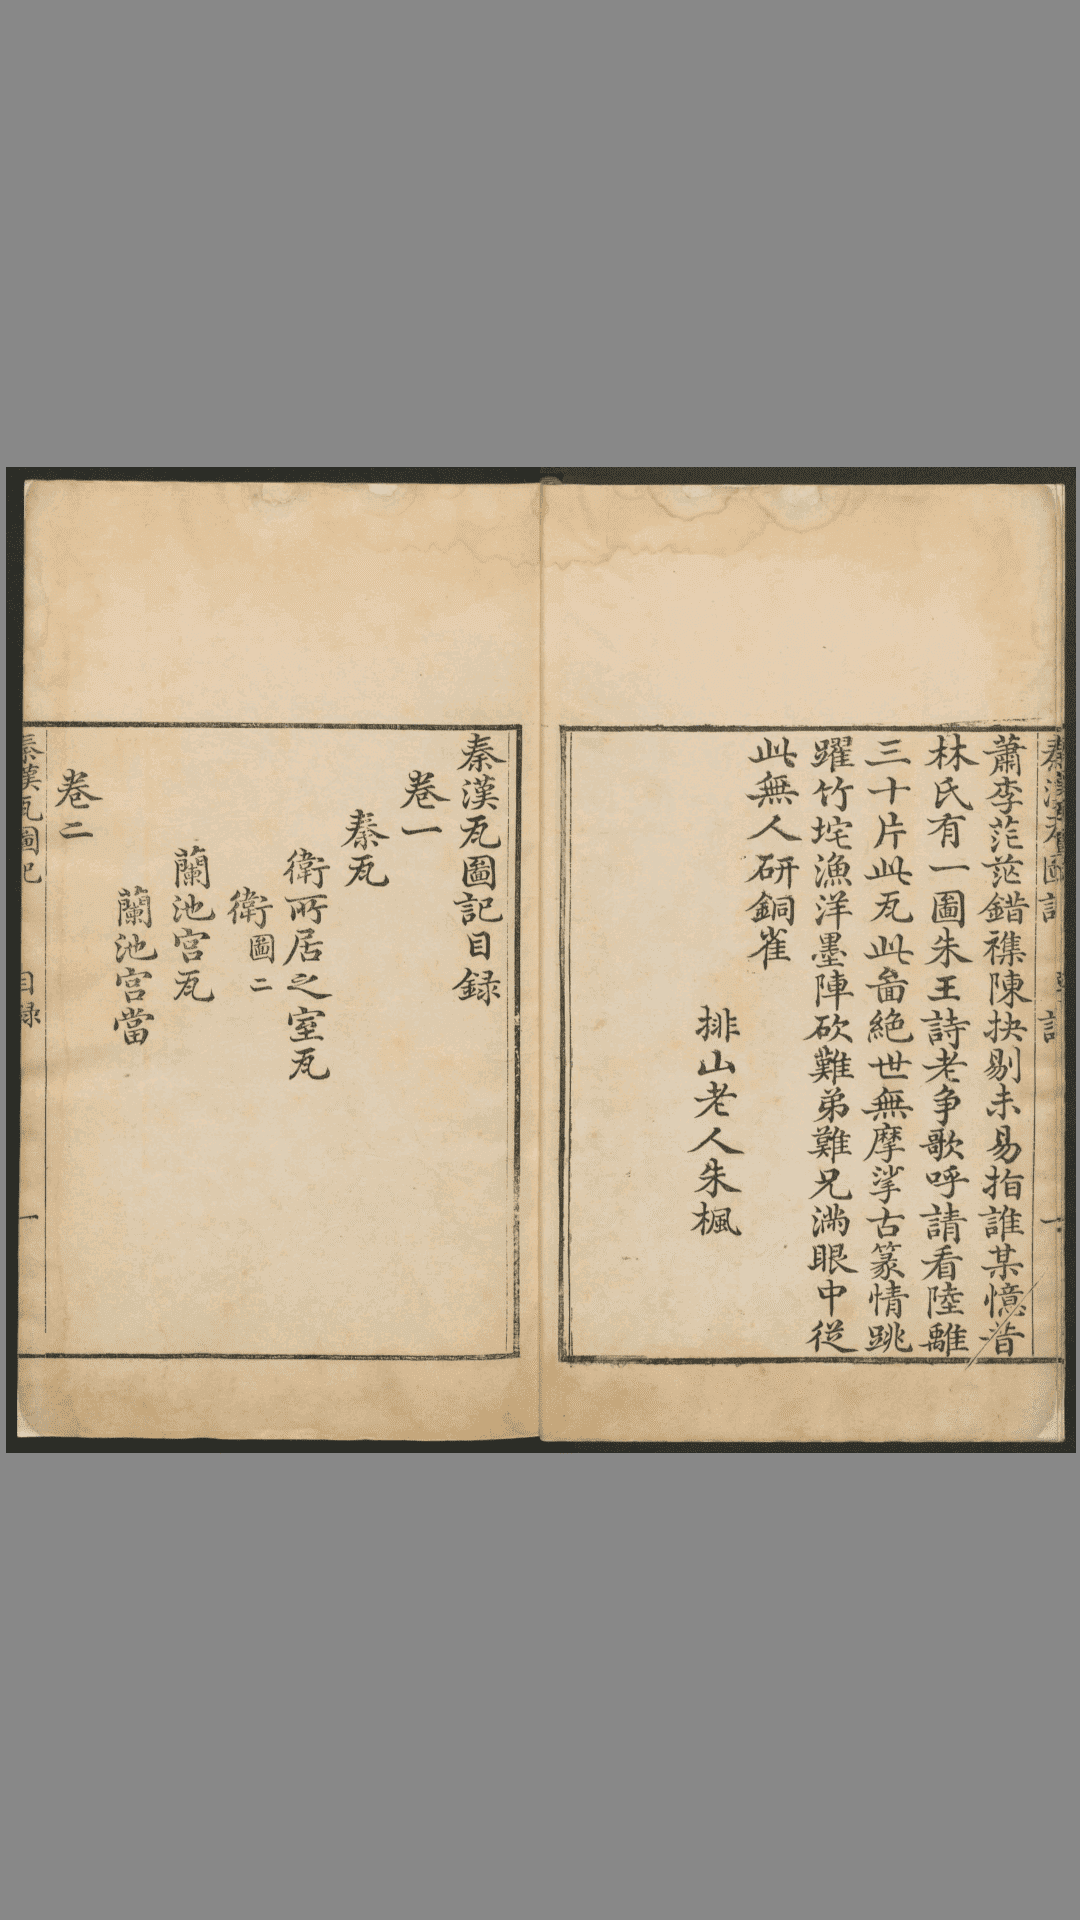 蕭李茫茫錯襍陳抉剔未易指誰某憶昔
林氏有一圖朱王詩老爭歌呼請看陸離
三十片此瓦此啚絶世無摩挲古篆情跳
躍竹垞漁洋墨陣砍難弟難兄滿眼中從
此無人研銅雀
排山老人朱楓
秦漢瓦圖記目録
卷一
秦瓦
衛所居之室瓦
衛圖二
蘭池宮瓦
蘭池宮當
卷二
秦漢瓦圖記 目録 一